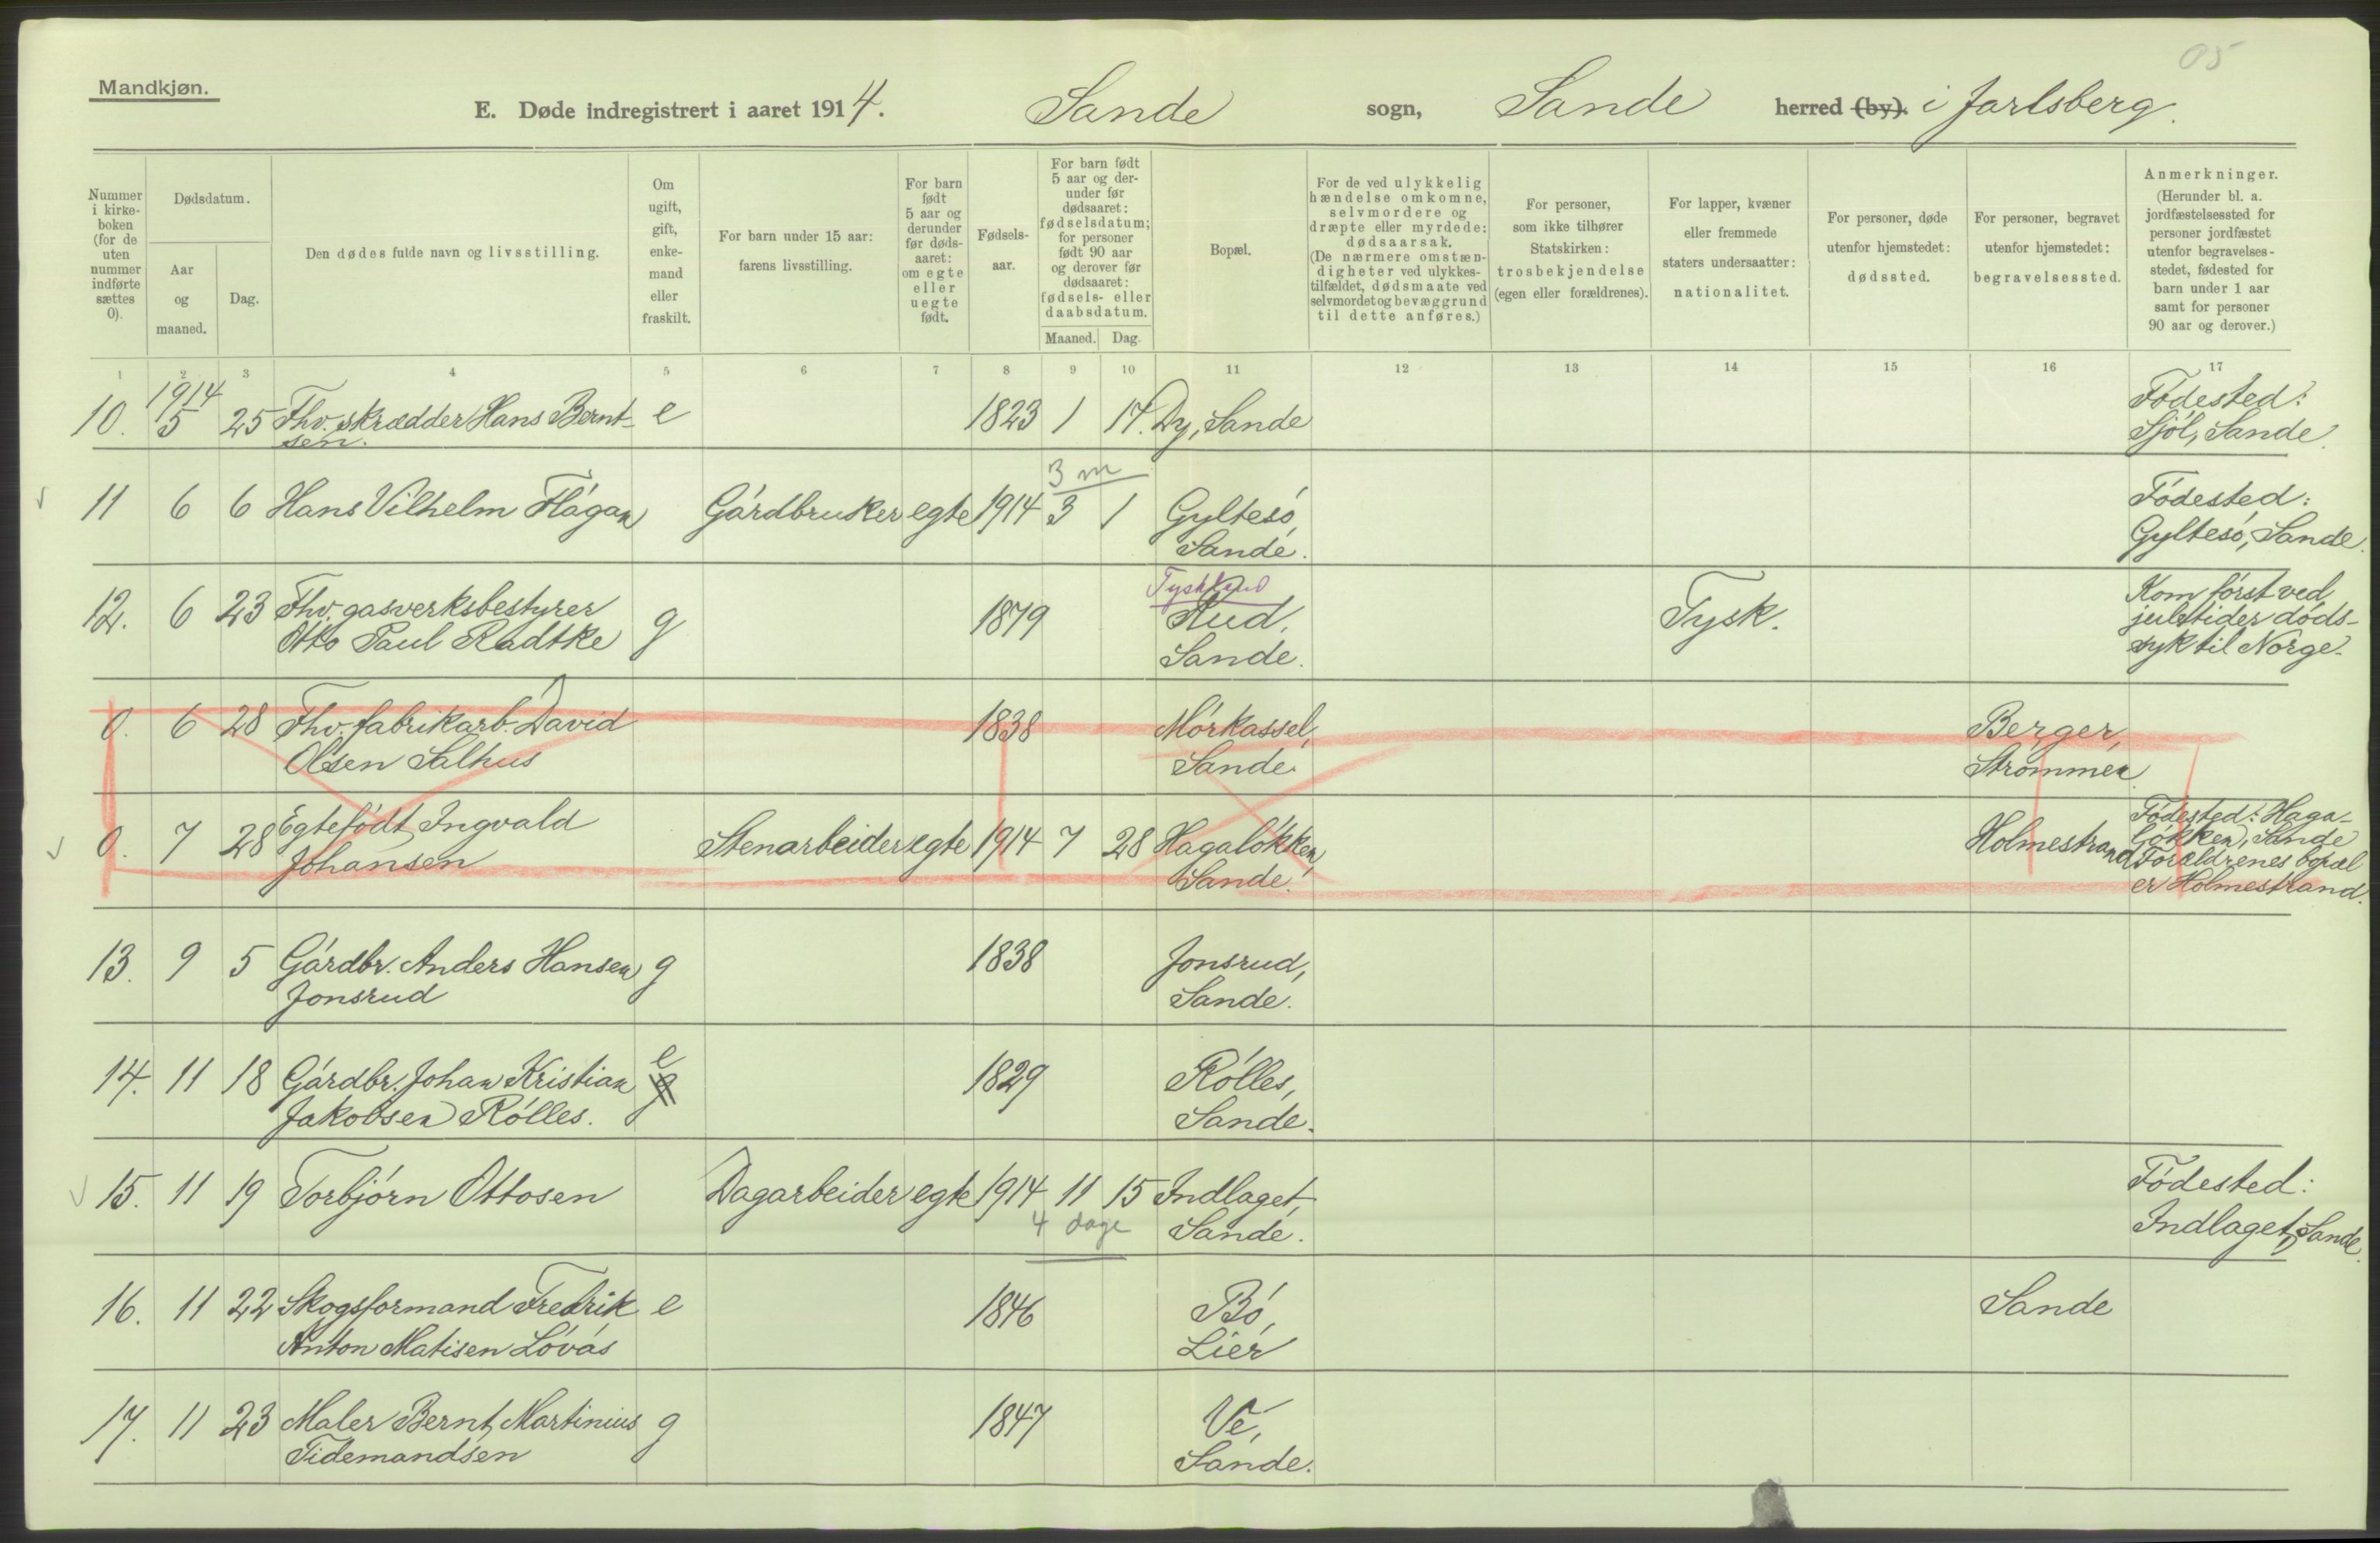 05
Mandkjøn.
E. Døde indregistrert i aaret 1914. Sande sogn, Sande herred (by). i Jarlsberg.
Nummer i kirke-boken (for de uten nummer indførte sættes 0).
Dødsdatum.
Aar og maaned.
Dag.
Den dødes fulde navn og livsstilling.
Om ugift, gift, enke-mand eller fraskilt.
For barn under 15 aar: farens livsstilling.
For barn født 5 aar og derunder før døds-aaret: om egte eller uegte født.
Fødsels-aar.
For barn født 5 aar og der-under før dødsaaret: fødselsdatum; for personer født 90 aar og derover før dødsaaret: fødsels- eller daabsdatum.
Maaned. Dag.
Bopæl.
For de ved ulykkelig hændelse omkomne, selvmordere og dræpte eller myrdede: dødsaarsak. (De nærmere omstæn-digheter ved ulykkes-tilfældet, dødsmaate ved selvmordet og bevæggrund til dette anføres.)
For personer, som ikke tilhører Statskirken: trosbekjendelse (egen eller forældrenes).
For lapper, kvæner eller fremmede staters undersaatter: nationalitet.
For personer, døde utenfor hjemstedet: dødssted.
For personer, begravet utenfor hjemstedet: begravelsessted.
Anmerkninger. (Herunder bl. a. jordfæstelsessted for personer jordfæstet utenfor begravelses-stedet, fødested for barn under 1 aar samt for personer 90 aar og derover.)
1 2 3 4 5 6 7 8 9 10 11 12 13 14 15 16 17
1914
10. 5 25 Fhv. skrædder Hans Bernt- e 1823 1 17. Dy, Sande Fødested:
sen. Sjøl, Sande.
3 m
11 6 6 Hans Vilhelm Hågan Gårdbruker egte 1914 3 1 Gyltesø, Fødested:
Sande. Gyltesø, Sande.
Tyskland
12. 6 23 Fhv. gasverksbestyrer g 1879 Rud, Tysk. Kom først ved
Otto Paul Radtke Sande. juletider døds-
syk til Norge.
0. 6 28 Fhv. fabrikarb. David 1838 Mörkassel, Berger,
Olsen Salhus Sande. Strømmen
0. 7 28 Egtefødt Ingvald Stenarbeider egte 1914 7 28 Hagaløkken, Holmestrand Fødested: Haga-
Johansen Sande. løkken, Sande
Forældrenes bopæl
er Holmestrand.
13. 9 5 Gårdbr. Anders Hansen g 1838 Jonsrud,
Jonsrud Sande.
e
14. 11 18 Gårdbr. Johan Kristian g 1829 Rølles,
Jakobsen Rølles. Sande.
15. 11 19 Torbjørn Ottosen Dagarbeider egte 1914 11 15 Indlaget, Fødested:
4 dage Sande. Indlaget, Sande.
16. 11 22 Skogsformand Fredrik e 1846 Bø, Sande
Anton Matisen Løvås Lier
17. 11 23 Maler Bernt Martinius g 1847 Ve,
Tidemandsen Sande.